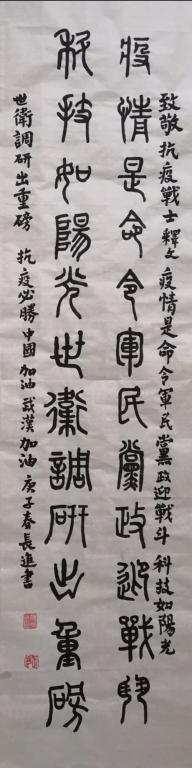 致敬抗疫戰士 釋文 疫情是命令軍民黨政迎戰斗 科技如陽光
疫情是命令軍民黨政迎戰鬥
科技如陽光世衛調研出重磅
世衛調研出重磅 抗疫必勝中國加油武漢加油 庚子春長進書